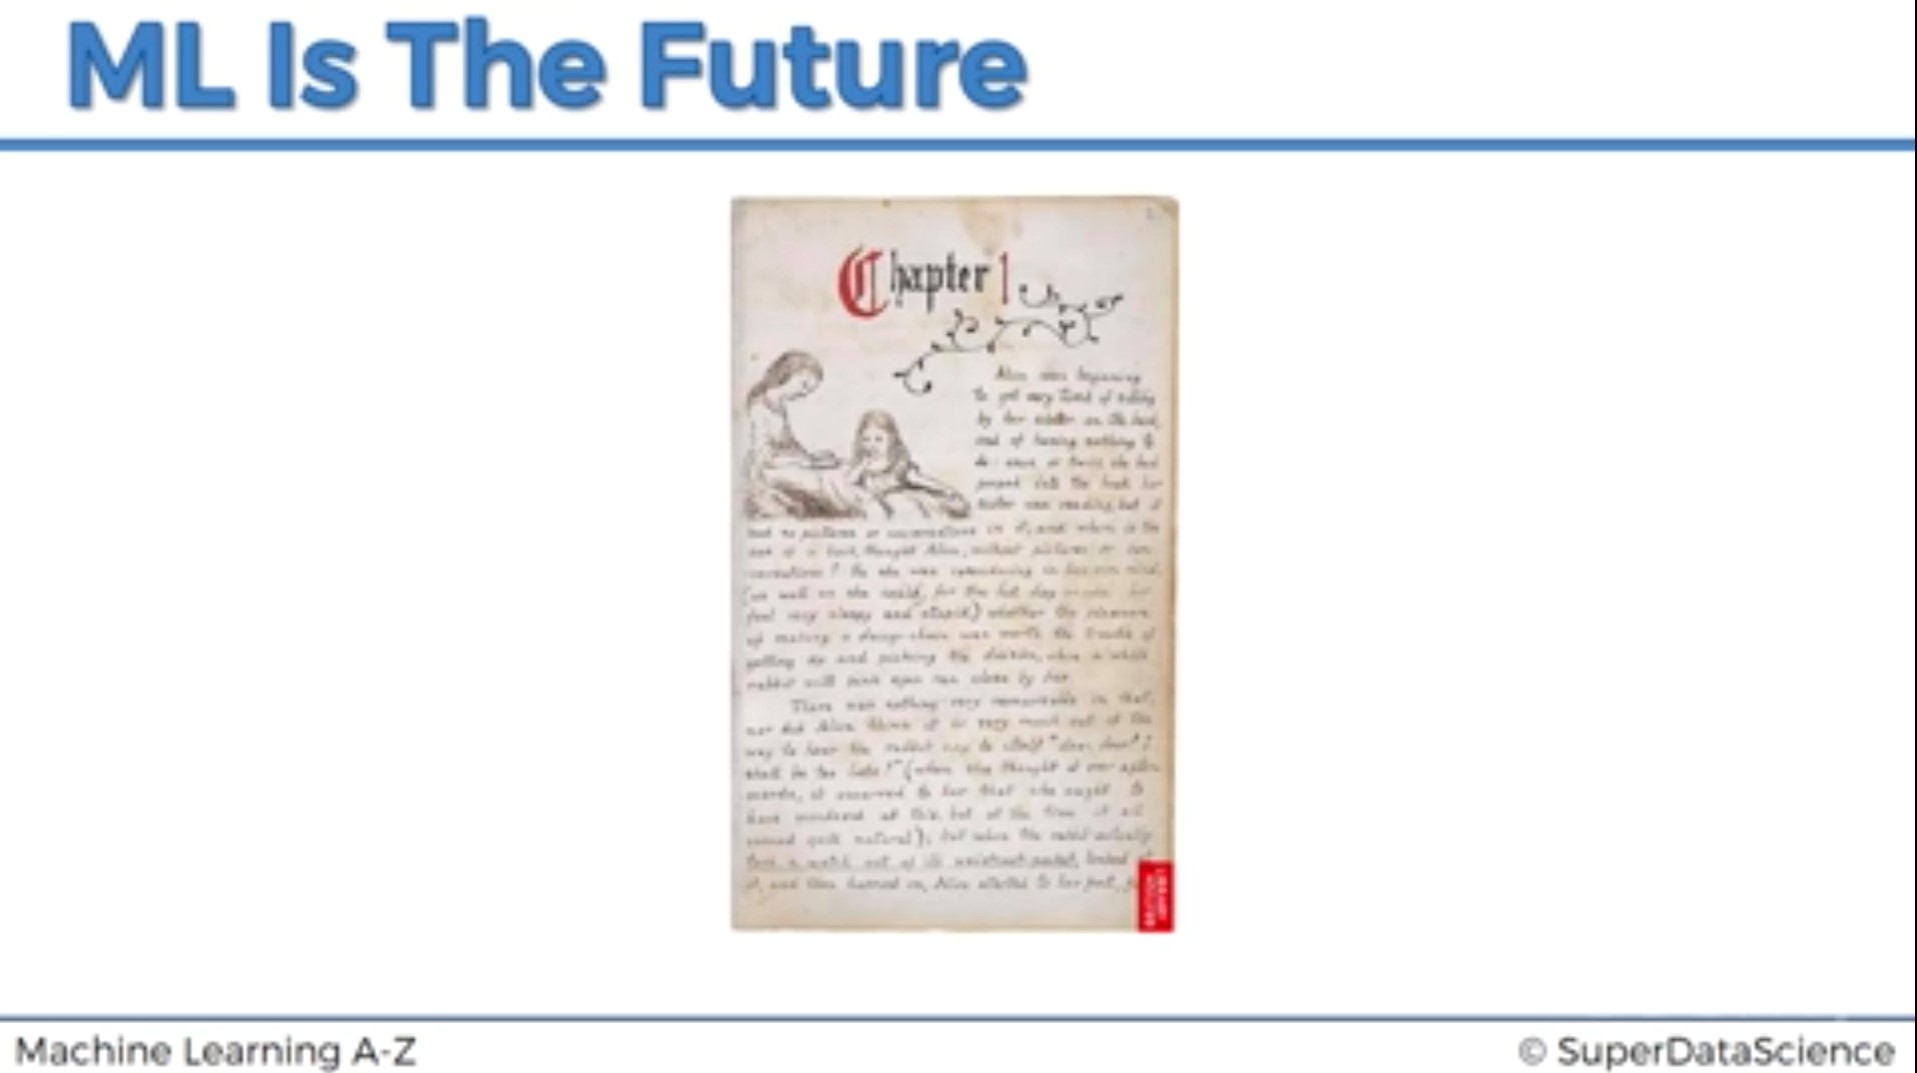 ML Is The Future
Chapter 1
Alice was beginning
to get very tired of sitting
by her sister on the bank,
and of having nothing to
do: once or twice she had
peeped into the book her
sister was reading, but it
had no pictures or conversations in it, and where is the
use of a book, thought Alice, without pictures or con-
-versations? So she was considering in her own mind,
(as well as she could, for the hot day made her
feel very sleepy and stupid,) whether the pleasure
of making a daisy-chain was worth the trouble of
getting up and picking the daisies, when a white
rabbit with pink eyes ran close by her.
There was nothing very remarkable in that,
nor did Alice think it so very much out of the
way to hear the rabbit say to itself "dear, dear! I
shall be too late!" (when she thought it over after-
wards, it occurred to her that she ought to
have wondered at this, but at the time it all
seemed quite natural); but when the rabbit actually
took a watch out of its waistcoat-pocket, looked at
it, and then hurried on, Alice started to her feet,
BRITISH
LIBRARY
Machine Learning A-Z
© SuperDataScience